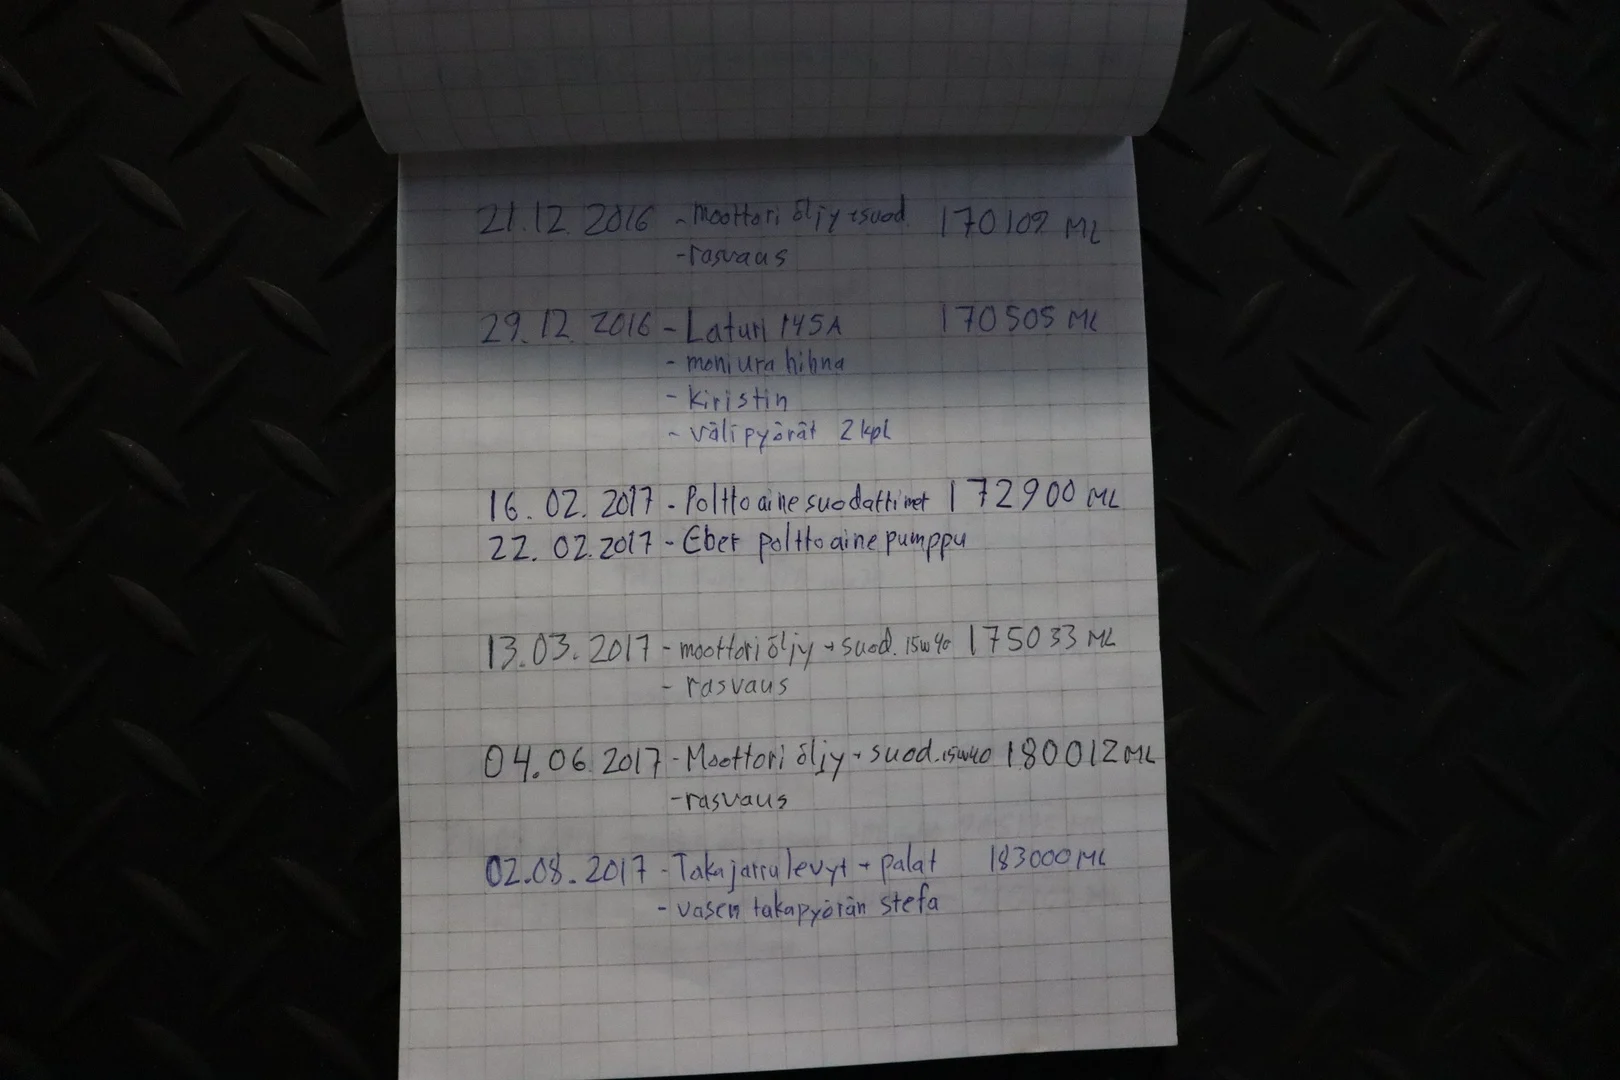 21.12.2016 - moottori öljy + suod. 170109 ML
- rasvaus
29.12.2016 - Laturi 145A 170505 ML
- moniura hihna
- kiristin
- välipyörät 2kpl
16.02.2017 - Polttoainesuodattimet 172900 ML
22.02.2017 - Eber polttoainepumppu
13.03.2017 - moottoriöljy + suod. 15w40 175033 ML
- rasvaus
04.06.2017 - Moottoriöljy + suod. 15w40 180012 ML
- rasvaus
02.08.2017 - Takajarrulevyt + palat 183000 ML
- vasen takapyörän stefa